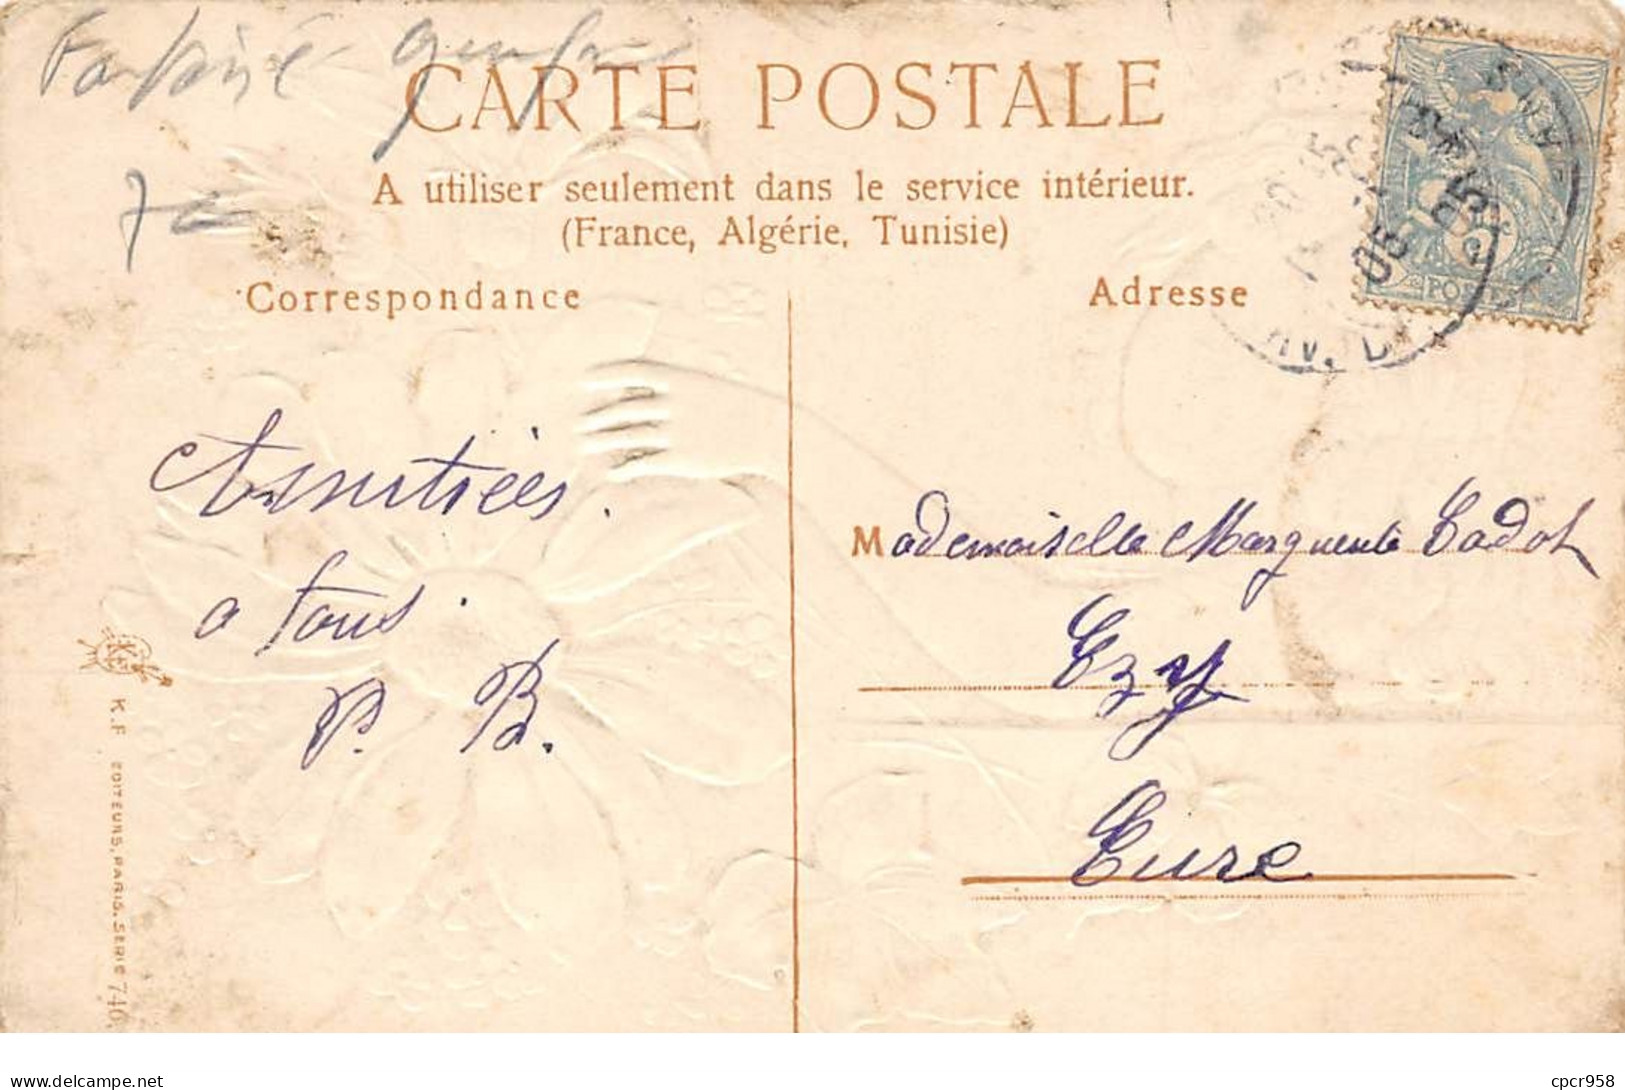 CARTE POSTALE
A utiliser seulement dans le service intérieur.
(France, Algérie, Tunisie)
Correspondance
Adresse
Amitiées.
a tous.
P. B.
Mademoiselle Marguerite Cadot
Ezy
Eure
K.F. EDITEURS, PARIS. SERIE 740.
POSTES
05
cpcr958